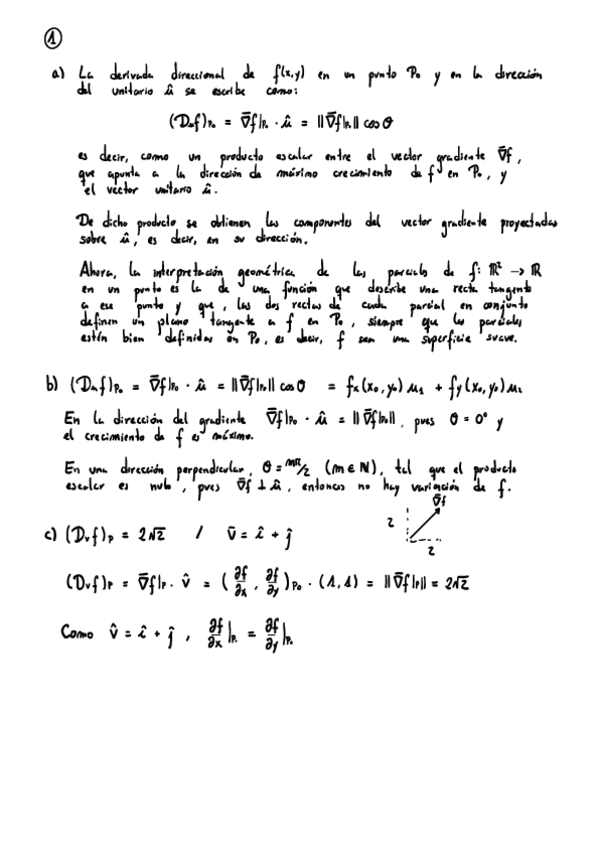 1
a) La derivada direccional de f(x,y) en un punto P₀ y en la dirección
del unitario û se escribe como:
(Dᵤf)P₀ = ∇̄f|P₀ · û = ||∇̄f|P₀|| cos θ
es decir, como un producto escalar entre el vector gradiente ∇̄f,
que apunta a la dirección de máximo crecimiento de f en P₀, y
el vector unitario û.
De dicho producto se obtienen las componentes del vector gradiente proyectadas
sobre û, es decir, en su dirección.
Ahora, la interpretación geométrica de las parciales de f: ℝ² → ℝ
en un punto es la de una función que describe una recta tangente
a ese punto y que, las dos rectas de cada parcial en conjunto
definen un plano tangente a f en P₀, siempre que las parciales
estén bien definidas en P₀, es decir, f sea una superficie suave.
b) (Dᵤf)P₀ = ∇̄f|P₀ · û = ||∇̄f|P₀|| cos θ = fx(x₀,y₀)u₁ + fy(x₀,y₀)u₂
En la dirección del gradiente ∇̄f|P₀ · û = ||∇̄f|P₀||, pues θ = 0° y
el crecimiento de f es máximo.
En una dirección perpendicular, θ = mπ/2 (m ∈ N), tal que el producto
escalar es nulo, pues ∇̄f ⊥ û, entonces no hay variación de f.
∇̄f
2
2
c) (Dᵥf)P = 2√2 / v̄ = î + ĵ
(Dᵥf)P = ∇̄f|P · v̂ = (∂f/∂x, ∂f/∂y)P₀ · (1,1) = ||∇̄f|P|| = 2√2
Como v̂ = î + ĵ, ∂f/∂x|P₀ = ∂f/∂y|P₀